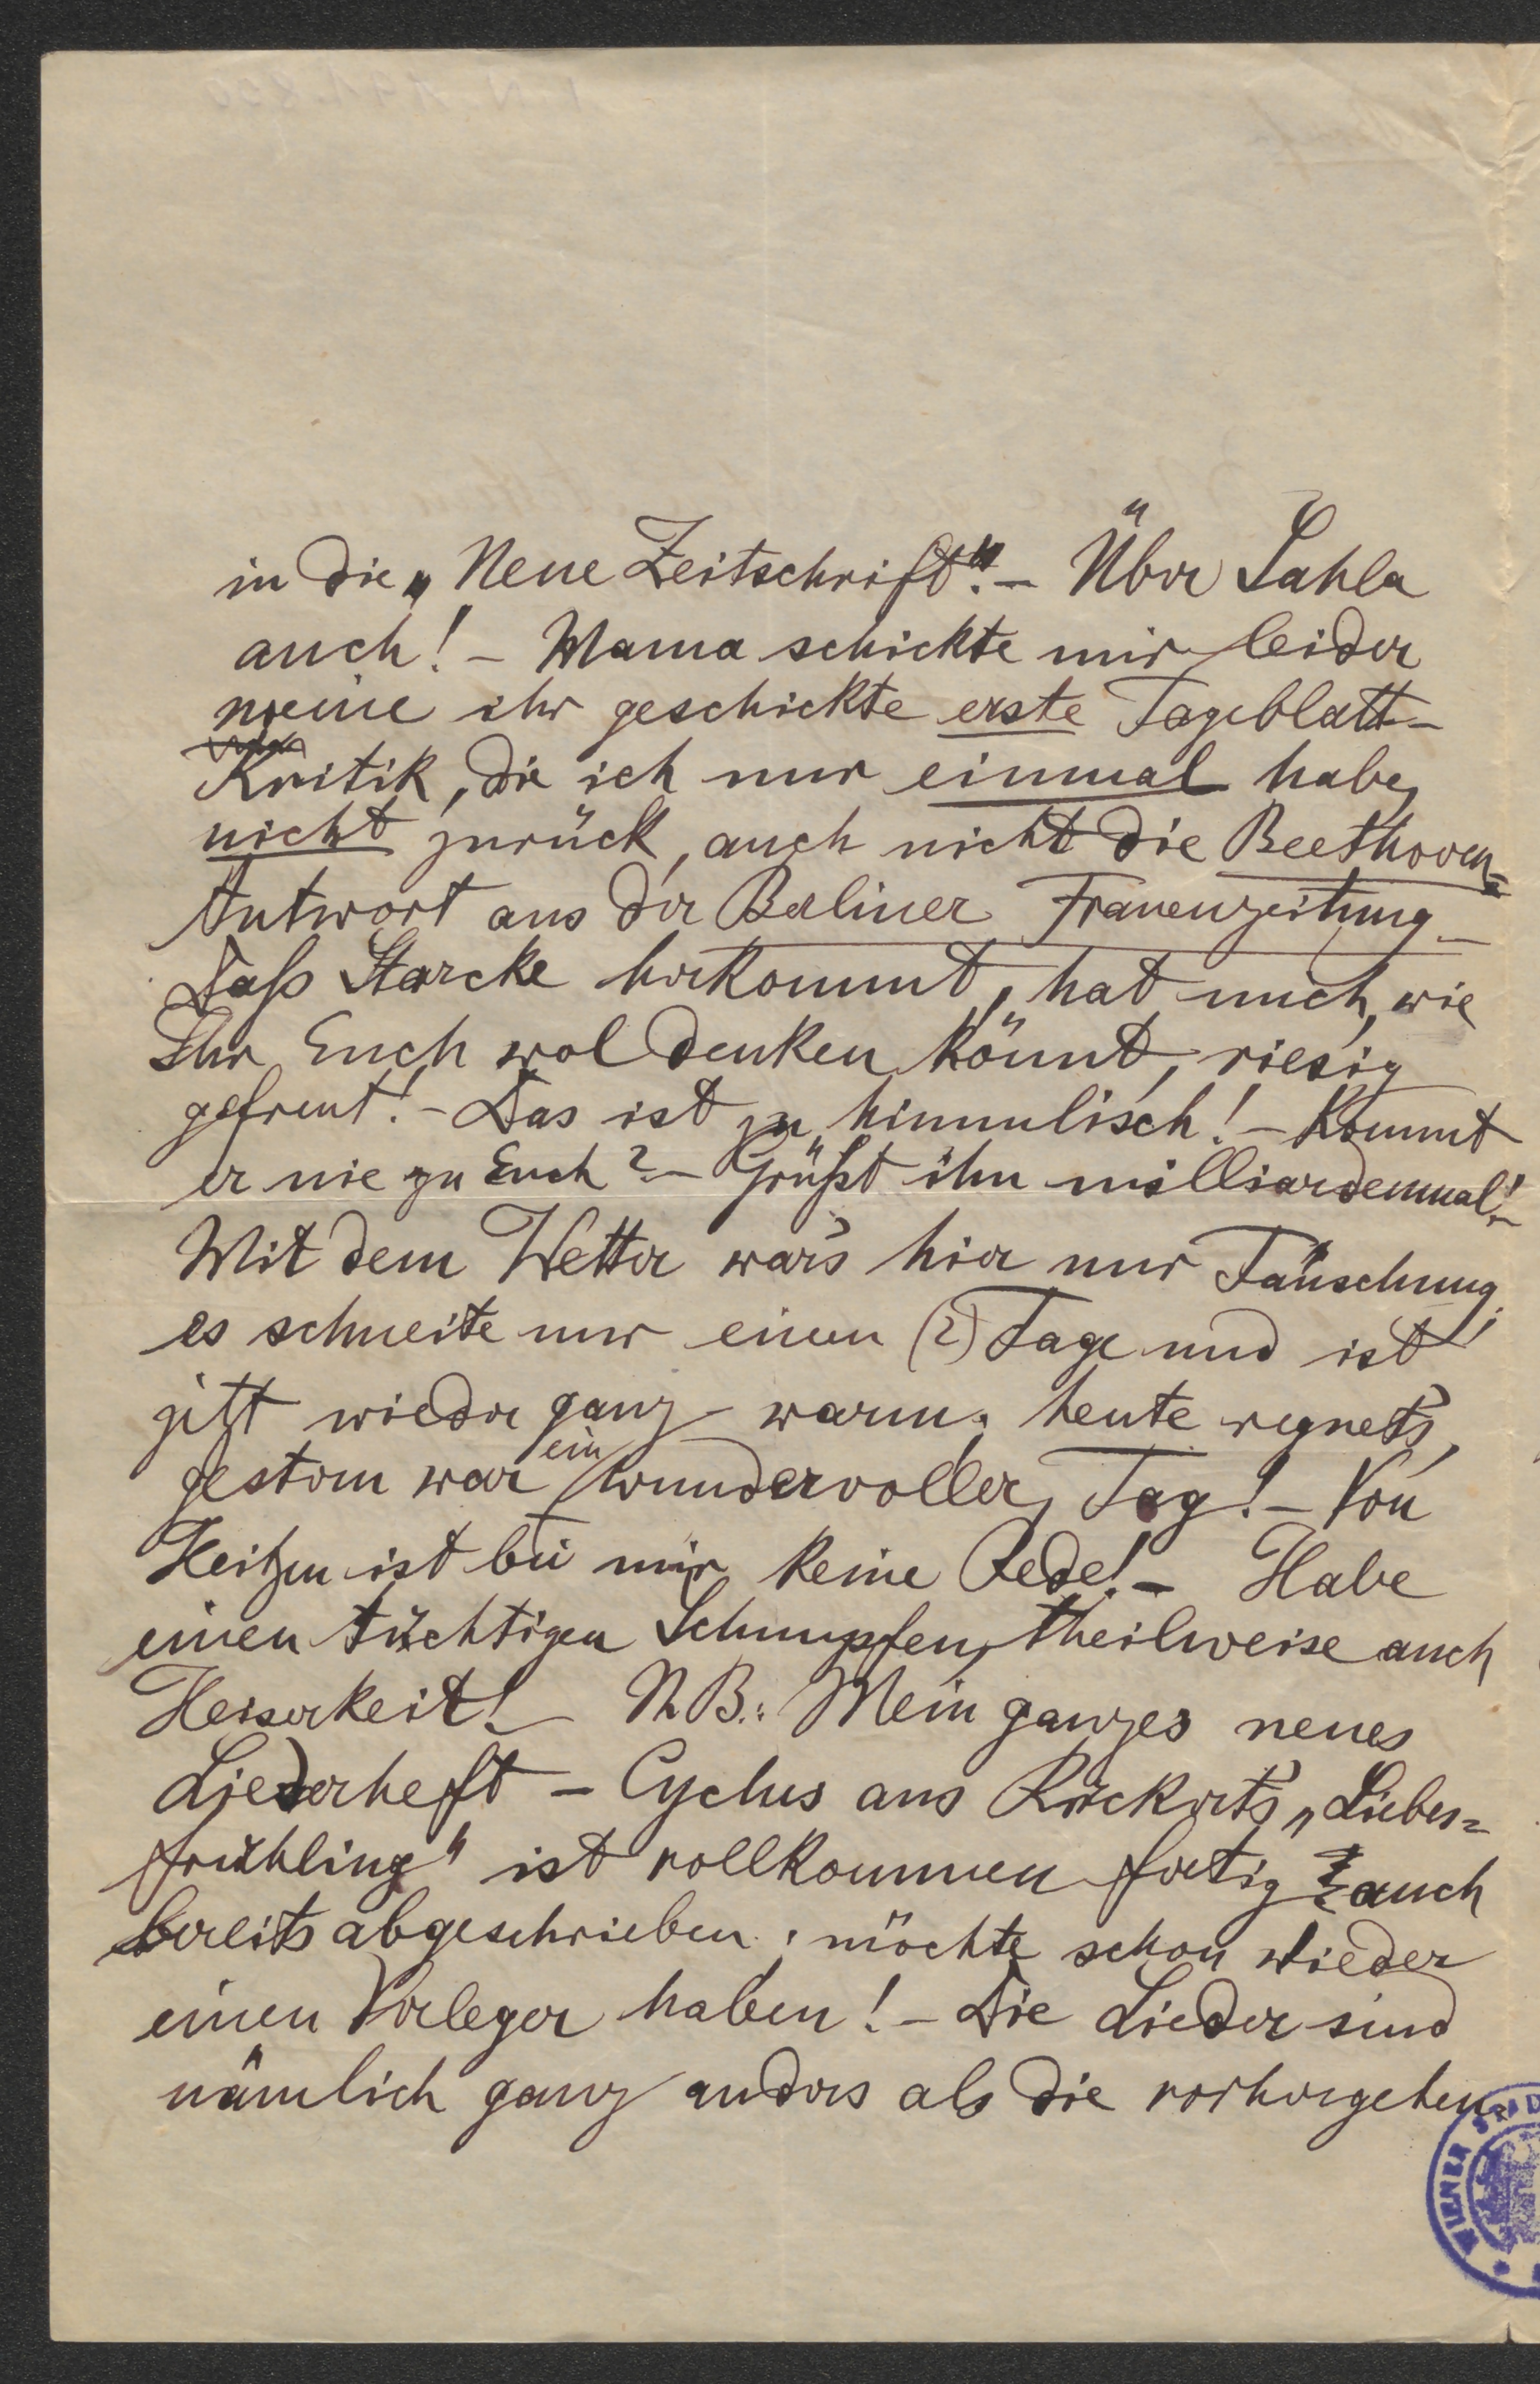 in die „Neue Zeitschrift". – Über Sahla
auch! – Mama schickte mir leider
meine ihr geschickte erste Tageblatt-
Kritik, die ich nur einmal habe,
nicht zurück, auch nicht die Beethoven=
Antwort aus der Berliner Frauenzeitung –
Daß Starcke herkommt, hat mich, wie
Ihr Euch wol denken könnt, riesig
gefreut! – Das ist zu himmlisch! – Kommt
er nie zu Euch? – Grüßt ihn milliardenmal! –
Mit dem Wetter war's hier nur Täuschung,
es schneite nur einen (2) Tage und ist
jetzt wieder ganz warm; heute regnet's,
gestern war ein wundervoller Tag! – Von
Heitzen ist bei mir keine Rede! – Habe
einen tüchtigen Schnupfen, theilweise auch
Heiserkeit! – NB.: Mein ganzes neues
Liederheft – Cyclus aus Rückert's „Liebes=
frühling" ist vollkommen fertig & auch
bereits abgeschrieben; möchte schon wieder
einen Verleger haben! – Die Lieder sind
nämlich ganz anders als die vorhergehen=
WIENER STAD